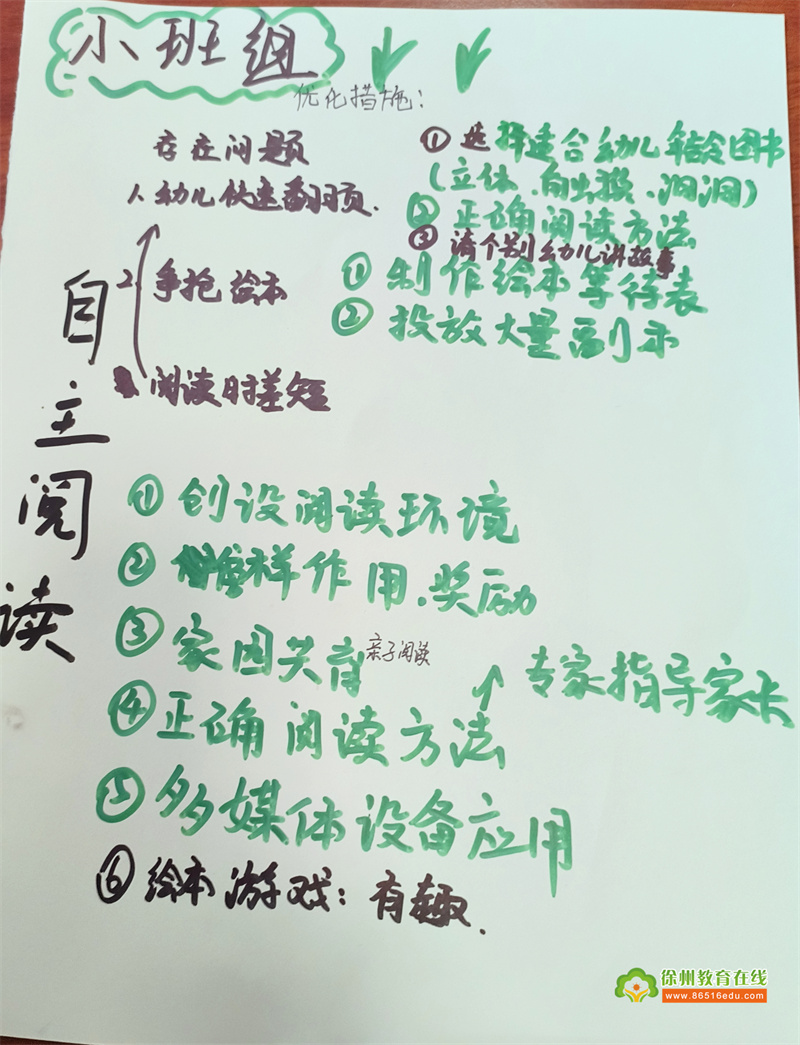 小班组
优化措施：
存在问题
1、幼儿快速翻页.
①选择适合幼儿年龄图书
(立体、自出揆、洞洞)
②正确阅读方法
③请个别幼儿讲故事
2 争抢绘本
①制作绘本等待表
②投放大量图示
阅读时差短
自主阅读
①创设阅读环境
②榜样作用.奖励
③家园共育 亲子阅读
专家指导家长
④正确阅读方法
⑤多媒体设备应用
⑥绘本游戏：有趣.
徐州教育在线
www.86516edu.com